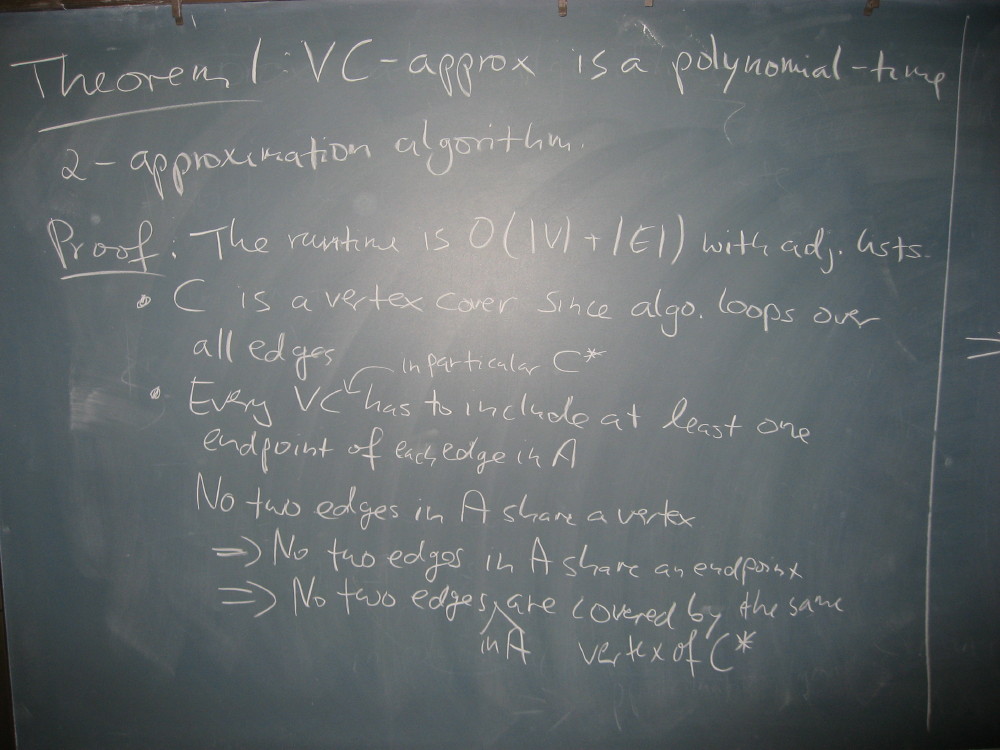 Theorem 1: VC-approx is a polynomial-time
2-approximation algorithm.
Proof: The runtime is O(|V| + |E|) with adj. lists.
• C is a vertex cover since algo. loops over
all edges
in particular C*
• Every VC has to include at least one
endpoint of each edge in A
No two edges in A share a vertex
=> No two edges in A share an endpoint
=> No two edges are covered by the same
in A vertex of C*
=